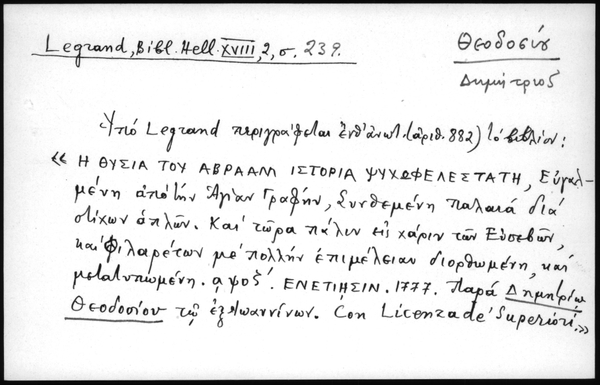 Legrand, Bibl. Hell. XVIII, 2, σ. 239.
Θεοδοσίου
Δημήτριος
Ὑπό Legrand περιγράφεται ἐνθ' ἀνωτ. (ἀριθ. 882) τό βιβλίον:
« Η ΘΥΣΙΑ ΤΟΥ ΑΒΡΑΑΜ ΙΣΤΟΡΙΑ ΨΥΧΩΦΕΛΕΣΤΑΤΗ, Εὐγαλ-
μένη ἀπό τήν Ἁγίαν Γραφήν, Συνθεμένη παλαιά διά
στίχων ἁπλῶν. Καί τώρα πάλιν εἰς χάριν τῶν Εὐσεβῶν,
καί Φιλαρέτων μέ πολλήν ἐπιμέλειαν διορθωμένη, καί
μετατυπωμένη. αψοζ΄. ΕΝΕΤΙΗΣΙΝ. 1777. Παρά Δημητρίῳ
Θεοδοσίου τῷ ἐξ Ἰωαννίνων. Con Licenza de' Superiori.»